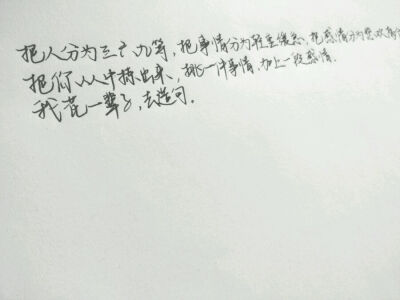 把人分为三六九等，把事情分为轻重缓急，把感情分为喜欢
把你从人中摘出来，挑一件事情，加上一段感情.
我花一辈子，去造句.